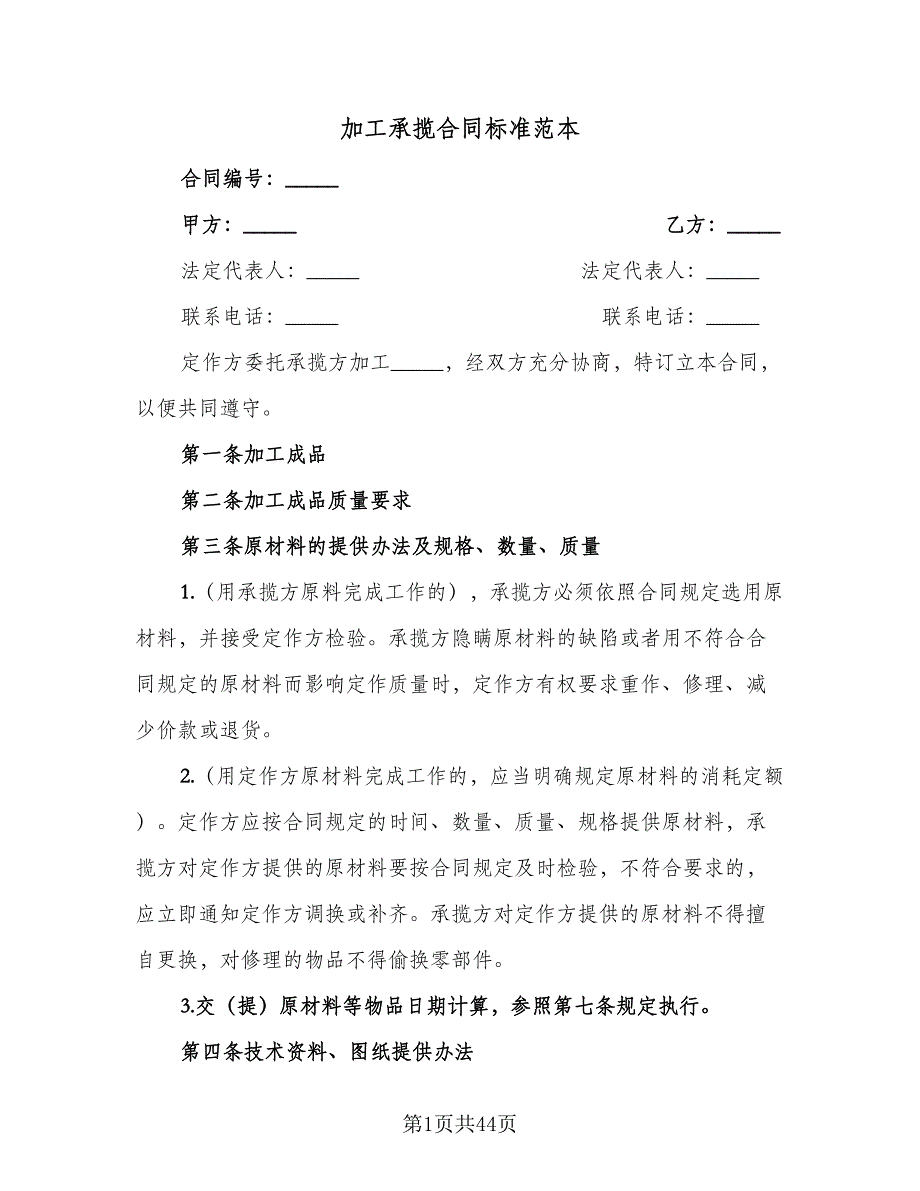 加工承揽合同标准范本
合同编号：_____
甲方：_____ 乙方：_____
法定代表人：_____ 法定代表人：_____
联系电话：_____ 联系电话：_____
定作方委托承揽方加工_____，经双方充分协商，特订立本合同，
以便共同遵守。
第一条加工成品
第二条加工成品质量要求
第三条原材料的提供办法及规格、数量、质量
1.（用承揽方原料完成工作的），承揽方必须依照合同规定选用原
材料，并接受定作方检验。承揽方隐瞒原材料的缺陷或者用不符合合
同规定的原材料而影响定作质量时，定作方有权要求重作、修理、减
少价款或退货。
2.（用定作方原材料完成工作的，应当明确规定原材料的消耗定额
）。定作方应按合同规定的时间、数量、质量、规格提供原材料，承
揽方对定作方提供的原材料要按合同规定及时检验，不符合要求的，
应立即通知定作方调换或补齐。承揽方对定作方提供的原材料不得擅
自更换，对修理的物品不得偷换零部件。
3.交（提）原材料等物品日期计算，参照第七条规定执行。
第四条技术资料、图纸提供办法
第1页共44页